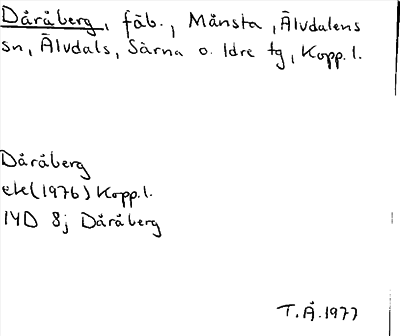 Dåråberg, fäb., Månsta, Älvdalens
sn, Älvdals, Särna o. Idre tg, Kopp.l.
Dåråberg
ek(1976) Kopp.l.
14D 8j Dåråberg
T.Å.1977